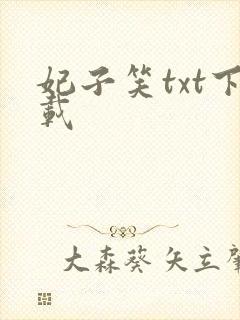 妃子笑txt下
载
大森葵 矢立肇